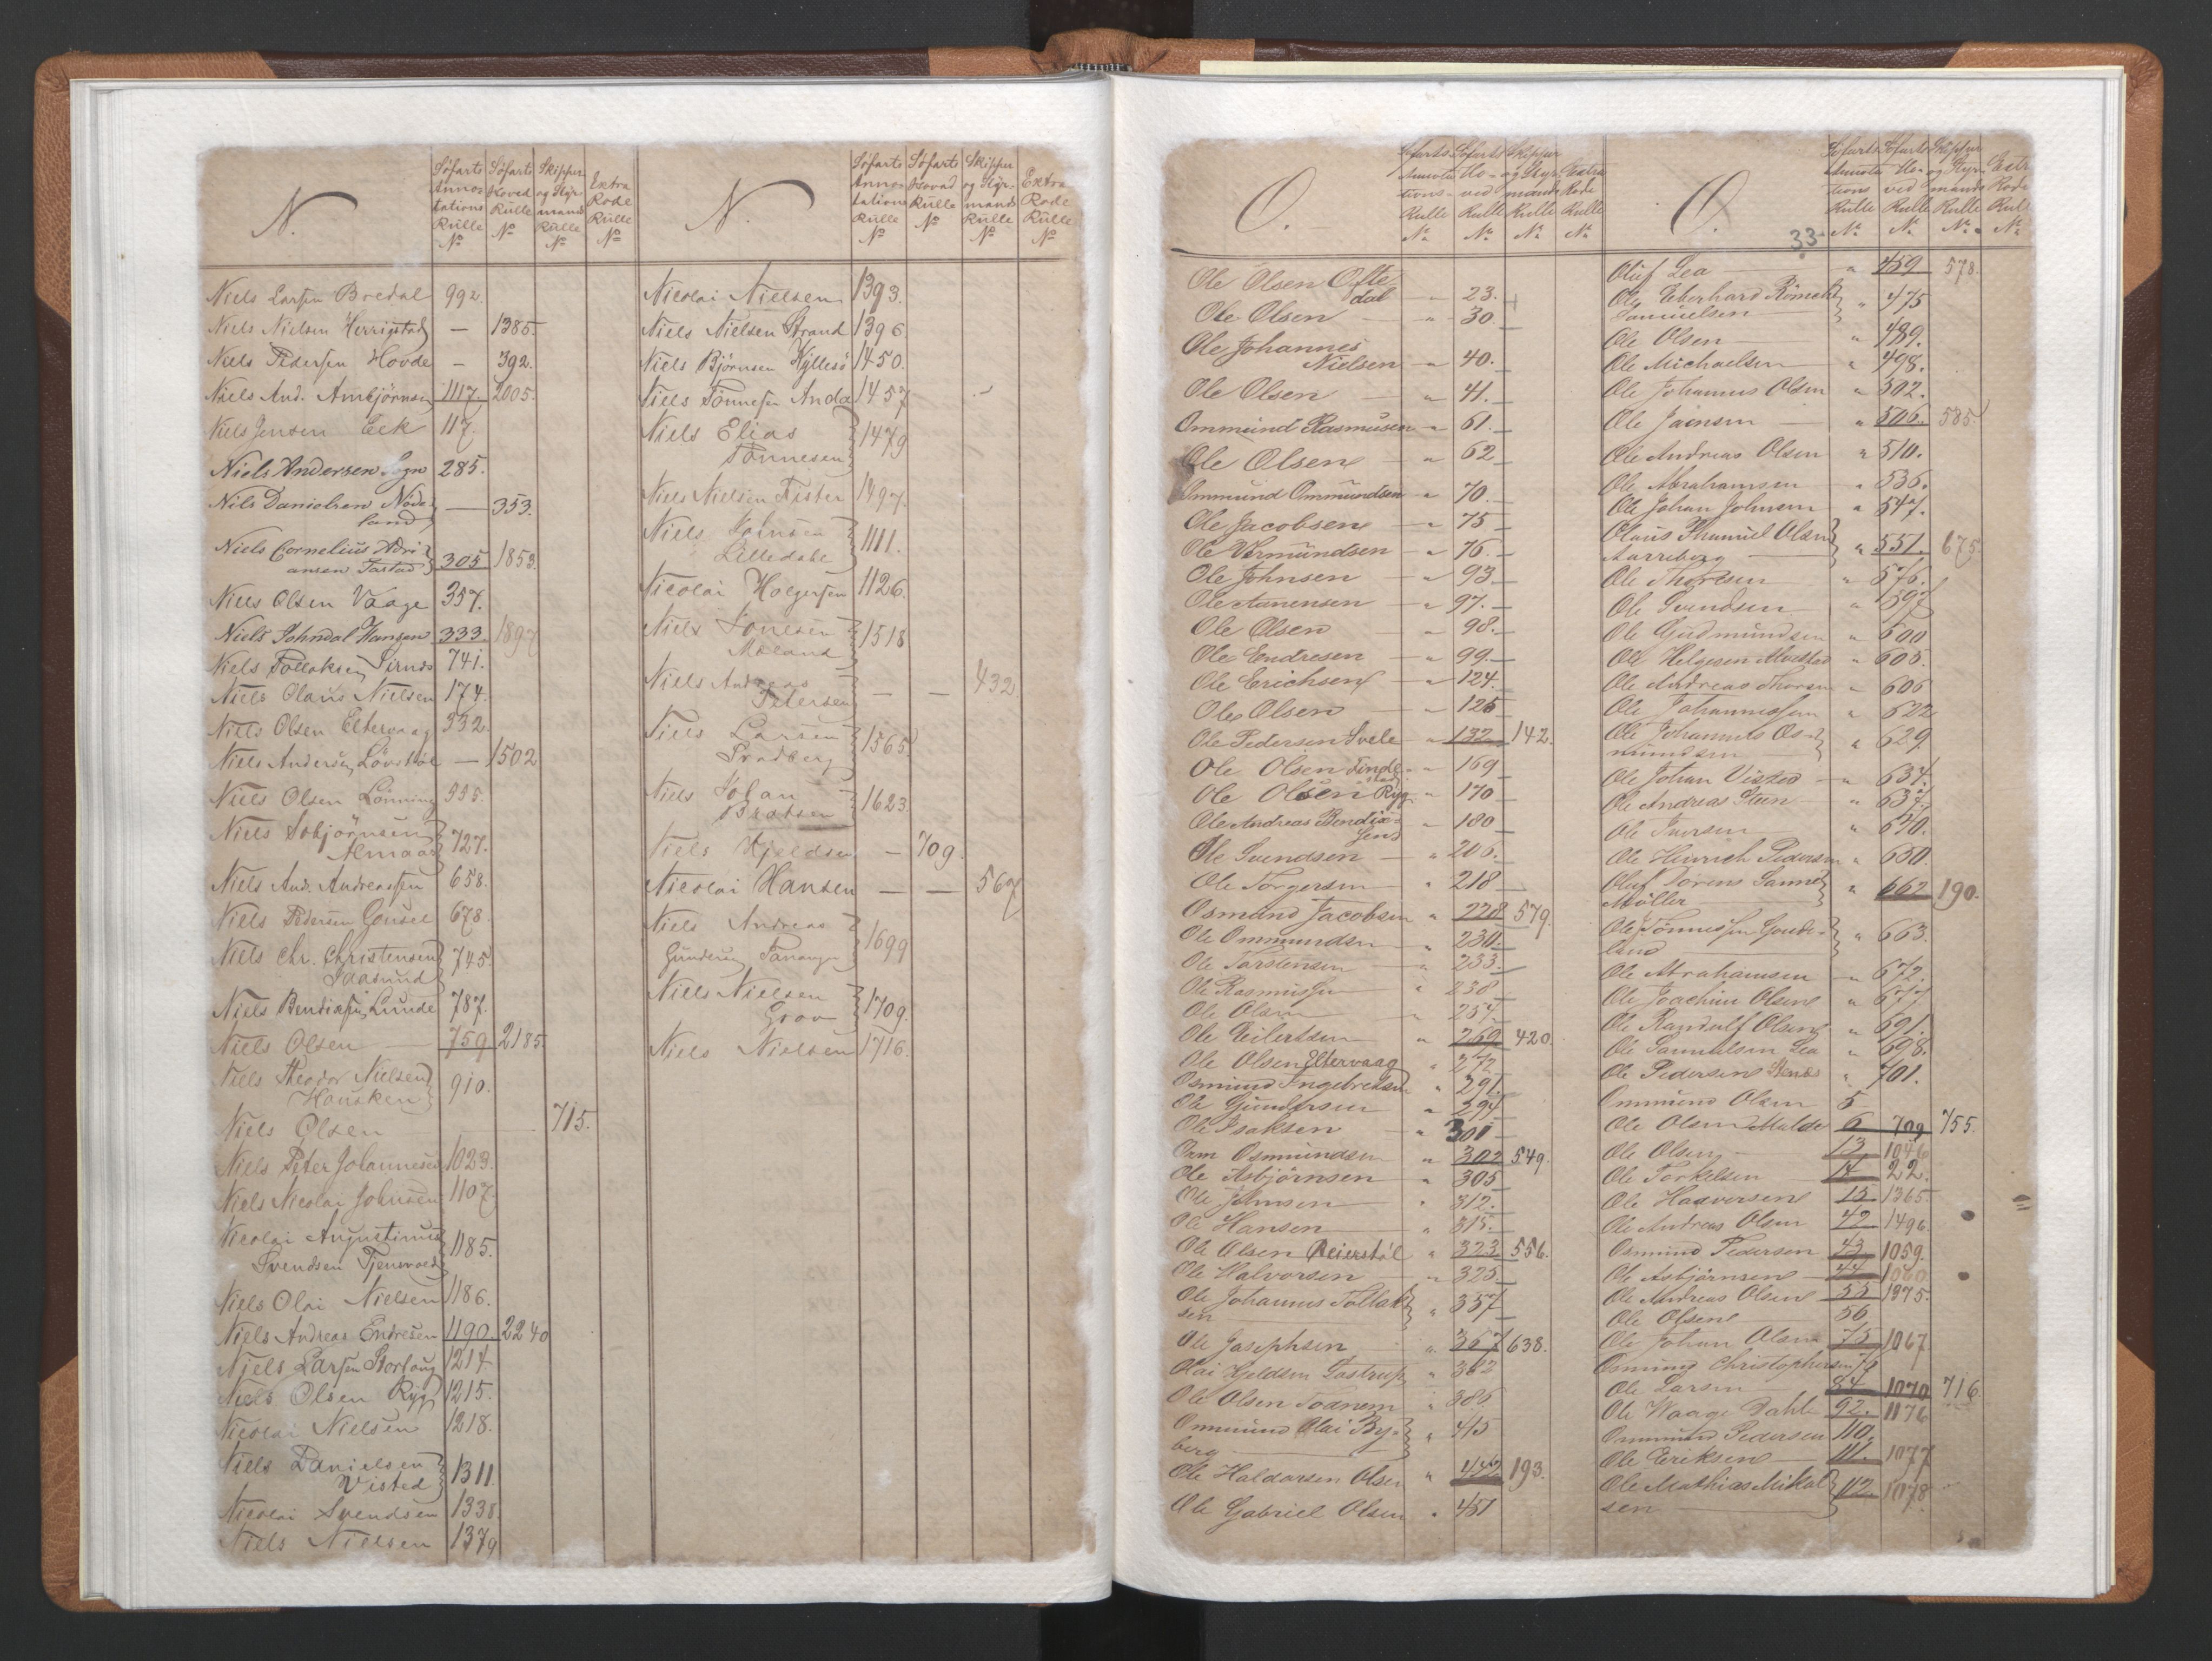 N.
Søfarts Annotations Rulle No
Søfarts Hoved Rulle No
Skipper og Styrmands Rulle No
Extra Rode Rulle No
Niels Larsen Bredal 992.
Niels Nielsen Herrigstad — 1385.
Niels Pedersen Hovde — 392.
Niels And. Ambjörnsen 1117. 2005.
Niels Jensen Eek 117.
Niels Andersen Sogn 285.
Nils Danielsen Nöde-
land — 353.
Niels Cornelius Adri-
ansen Tastad 305 1853.
Niels Olsen Vaage 357.
Niels Johndal Hansen 333. 1897
Niels Tollaksen Sirnes 741.
Niels Olaus Nielsen 174.
Niels Olsen Eltervaag 332
Niels Andersen — 1502
Niels Olsen Lönning 555.
Niels Asbjörnsen
Almaas 727.
Niels And. Andreassen 658.
Niels Pedersen Gousel 678.
Niels Chr. Christensen
Jaasund 745.
Niels Bendiksen Lunde 787.
Niels Olsen — 759 2185
Niels Theodor Nielsen
Housken 910.
Niels Olsen 715.
Niels Peter Johannesen 1023.
Niels Nicolai Johnsen 1107.
Nicolai Augustinus
Svendsen Tjensvold 1185.
Niels Olai Nielsen 1186.
Niels Andreas Endresen 1190 2240
Niels Larsen Storhoug 1214
Niels Olsen Ryg 1215.
Nicolai Nielsen 1218.
Niels Danielsen
Visted 1311.
Nicolai Svendsen 1338.
Niels Nielsen 1379
N.
Søfarts Annotations Rulle No
Søfarts Hoved Rulle No
Skipper og Styrmands Rulle No
Extra Rode Rulle No
Nicolai Nielsen 1393.
Niels Nielsen Strand 1396
Niels Björnsen Kyllesö 1450.
Niels Tönnesen Anda 1457
Niels Elias
Tönnesen 1479
Niels Nielsen Fister 1497.
Niels Johnsen
Lilledale 1111.
Nicolai Holgersen 1126.
Niels Jonesen
Moland 1518
Niels Andreas
Petersen — — 432
Niels Larsen
Bradberg 1565
Niels Johan
Bertsen 1623.
Niels Kjeldsen — 709.
Nicolai Hansen — — 567
Niels Andreas
Gundersen Tananger 1699
Niels Nielsen
Grov 1709.
Niels Nielsen 1716.
O.
Søfarts Annotations Rulle No
Søfarts Hoved Rulle No
Skipper og Styrmands Rulle No
Extra Rode Rulle No
Ole Olsen Ofte
dal " 23.
Ole Olsen " 30
Ole Johannes
Nielsen " 40.
Ole Olsen " 41.
Ommund Rasmusen " 61.
Ole Olsen " 62
Ommund Ommundsen " 70.
Ole Jacobsen " 75
Ole Vermundsen " 76.
Ole Johnsen " 93
Ole Aanensen " 97.
Ole Olsen " 98.
Ole Endresen " 99.
Ole Erichsen " 124.
Ole Olsen " 125
Ole Pedersen Svele " 132 142.
Ole Olsen Finde-
stad " 169
Ole Olsen Ryg " 170
Ole Andreas Bendix-
sen " 180
Ole Svendsen " 206.
Ole Torgersen " 218
Osmund Jacobsen " 228 579.
Ole Ommundsen " 230.
Ole Torstensen " 233.
Ole Rasmussen " 238
Ole Olsen " 254.
Ole Eilertsen " 269 420.
Ole Olsen Eltervaag " 272
Osmund Ingebretsen " 291.
Ole Gundersen " 294
Ole Isaksen " 301
Orm Osmundsen " 302 549.
Ole Asbjörnsen " 305
Ole Johnsen " 312.
Ole Hansen " 315.
Ole Olsen Reierstøl " 323 556.
Ole Halvorsen " 325.
Ole Johannes Tollak-
sen " 357
Ole Josephsen " 367 638.
Olai Kjeldsen Tastrup " 362
Ole Olsen Todnem " 386
Ommund Olai By-
berg " 415
Ole Haldorsen Olsen " 442 193.
Ole Gabriel Olsen " 451
O.
33
Søfarts Annotations Rulle No
Søfarts Hoved Rulle No
Skipper og Styrmands Rulle No
Extra Rode Rulle No
Oluf Lea " 459 578.
Ole Eberhard
Samuelsen " 475
Ole Olsen " 489.
Ole Michaelsen " 498.
Ole Johannes Olsen " 502.
Ole Jacnsen " 506. 585.
Ole Andreas Olsen " 510.
Ole Abrahamsen " 536.
Ole Johan Johnsen " 547.
Olaus Olsen
Aarreberg " 551. 675.
Ole Thorsen " 576.
Ole Svendsen " 597
Ole Gudmundsen " 600
Ole Helgesen " 605.
Ole Andreas Thorsen " 606
Ole Johannessen " 622
Ole Johannes Os-
mundsen " 629.
Ole Johan Visted " 634.
Ole Andreas Steen " 637.
Ole Iversen " 640.
Ole Hinrich Pedersen " 650.
Oluf Sörens Sanne
Möller " 662 190.
Ole Tönnessen Goude-
land " 663.
Ole Abrahamsen " 672.
Ole Joachim Olsen " 677
Ole Randulf Olsen " 691.
Ole Samuelsen Lea " 698.
Ole Pedersen " 701.
Ommund Olsen 5
Ole Olsen Malde 6 709 755.
Ole Olsen 13 1046
Ole Torkelsen 14 22.
Ole Haavorsen 15 1365
Ole Andreas Olsen 42 1496.
Osmund Pedersen 43 1059.
Ole Asbjörnsen 44 1060.
Ole Andreas Olsen 55 1375.
Ole Olsen 56
Ole Johan Olsen 75 1067.
Osmund Christophersen
Ole Larsen 84 1070 716.
Ole Waage Dahle 92. 1176
Ommund Pedersen 110.
Ole Eriksen 111. 1077
Ole Mathias Mikal-
sen 112. 1078